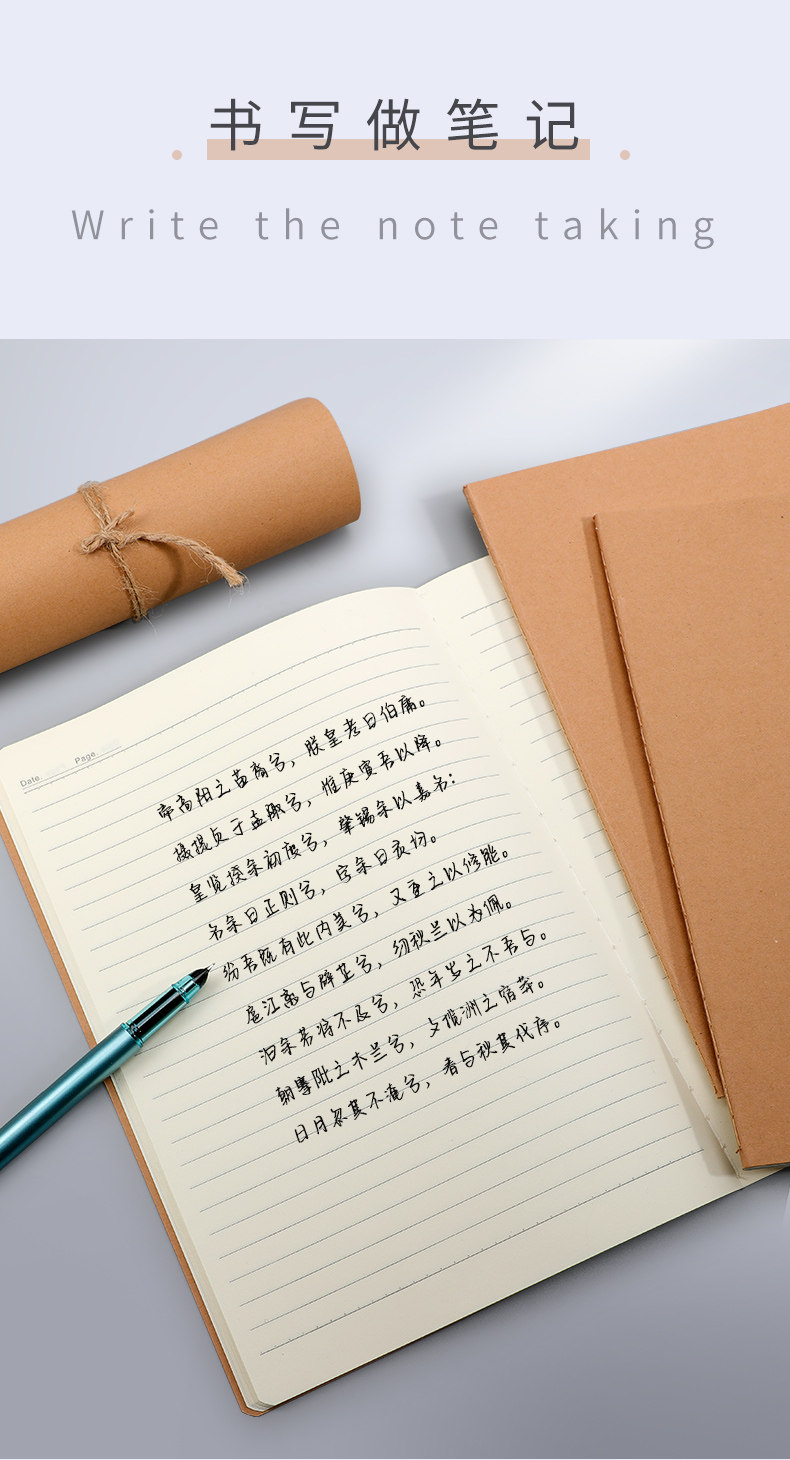 书写做笔记
Write the note taking
Date. Page.
帝高阳之苗裔兮，朕皇考曰伯庸。
摄提贞于孟陬兮，惟庚寅吾以降。
皇览揆余初度兮，肇锡余以嘉名：
名余曰正则兮，字余曰灵均。
纷吾既有此内美兮，又重之以修能。
扈江离与辟芷兮，纫秋兰以为佩。
汩余若将不及兮，恐年岁之不吾与。
朝搴阰之木兰兮，夕揽洲之宿莽。
日月忽其不淹兮，春与秋其代序。